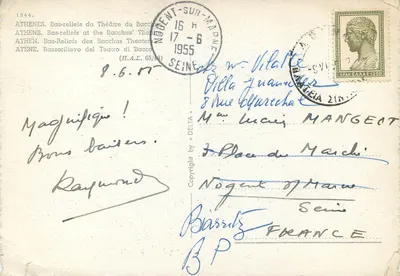 1244.
ATHÈNES. Bas-reliefs du Théâtre du Bacchus
ATHENS. Bas-reliefs at the Bacchus' Theatre
ATHEN. Bas-Reliefs des Bacchus Theaters
ATENE. Bassorilievo del Teatro di Bacco
8.6.55
Magnifique !
Bons baisers.
Raymond
Copyright by "DELTA"
NOGENT-SUR-MARNE
16 H
17 - 6
1955
SEINE
Villa
8 Rue
Mme MANGEOT
7 Place du Marché
Nogent s/ Marne
Seine
FRANCE
Biarritz
B P